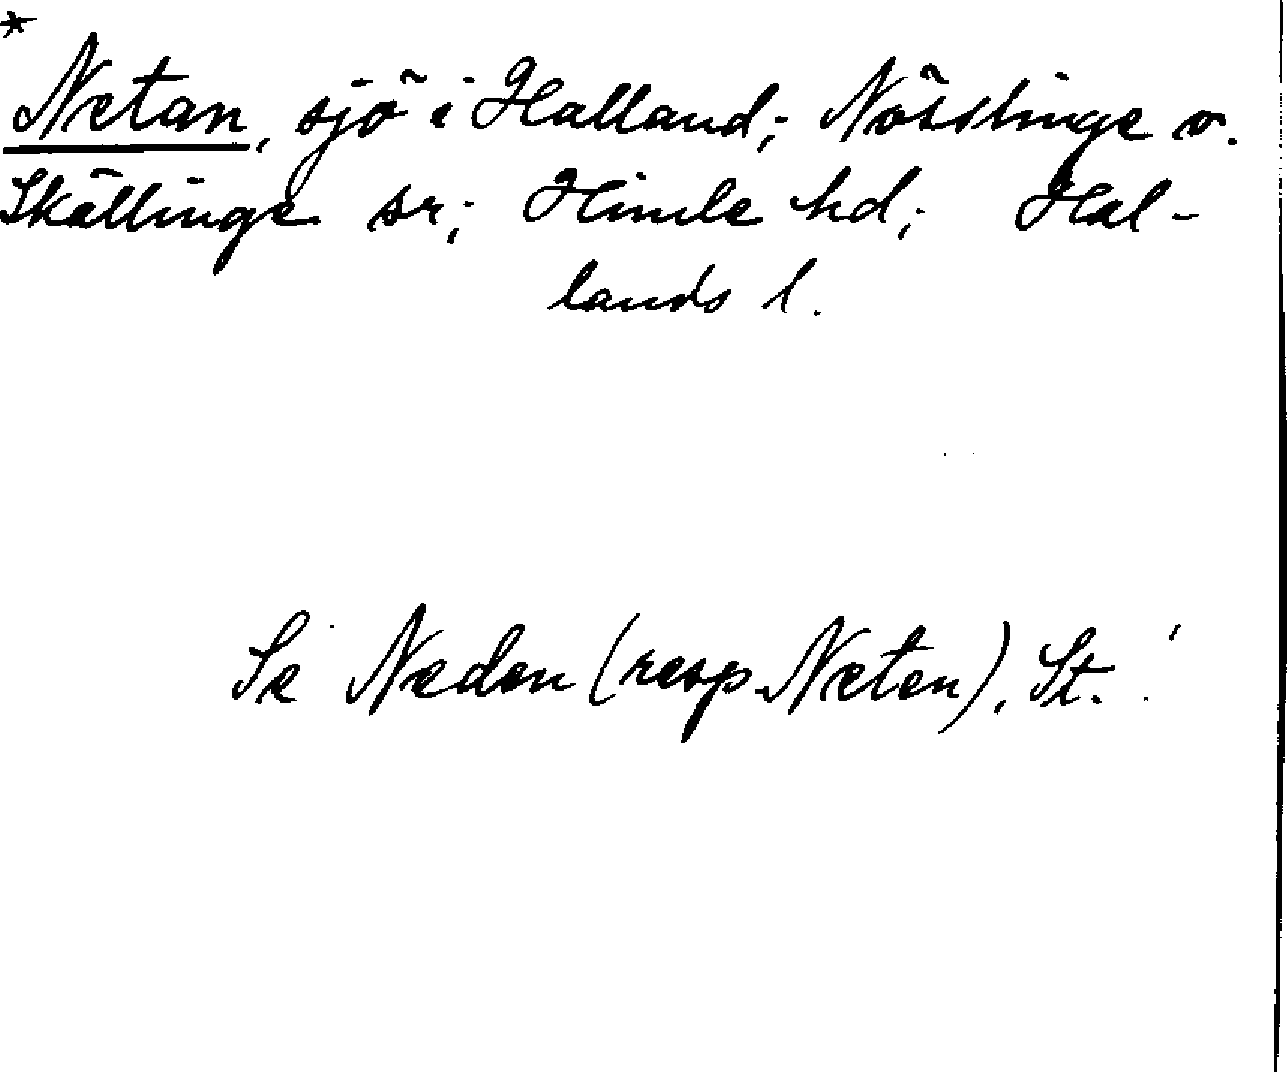 *
Netan, sjö i Halland; Nösslinge o.
Skällinge sr; Himle hd; Hal-
lands l.
Se Neden (resp. Neten), St.